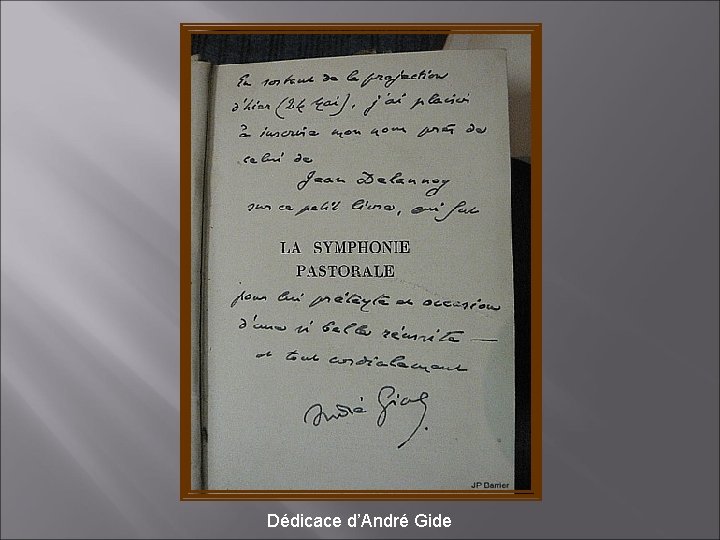 En sortant de la projection
d'hier (24 mai), j'ai plaisir
à inscrire mon nom près de
celui de
Jean Delannoy
sur ce petit livre, qui fut
LA SYMPHONIE
PASTORALE
pour lui prétexte et occasion
d'une si belle réussite —
et tout cordialement
André Gide.
JP Barrier
Dédicace d'André Gide